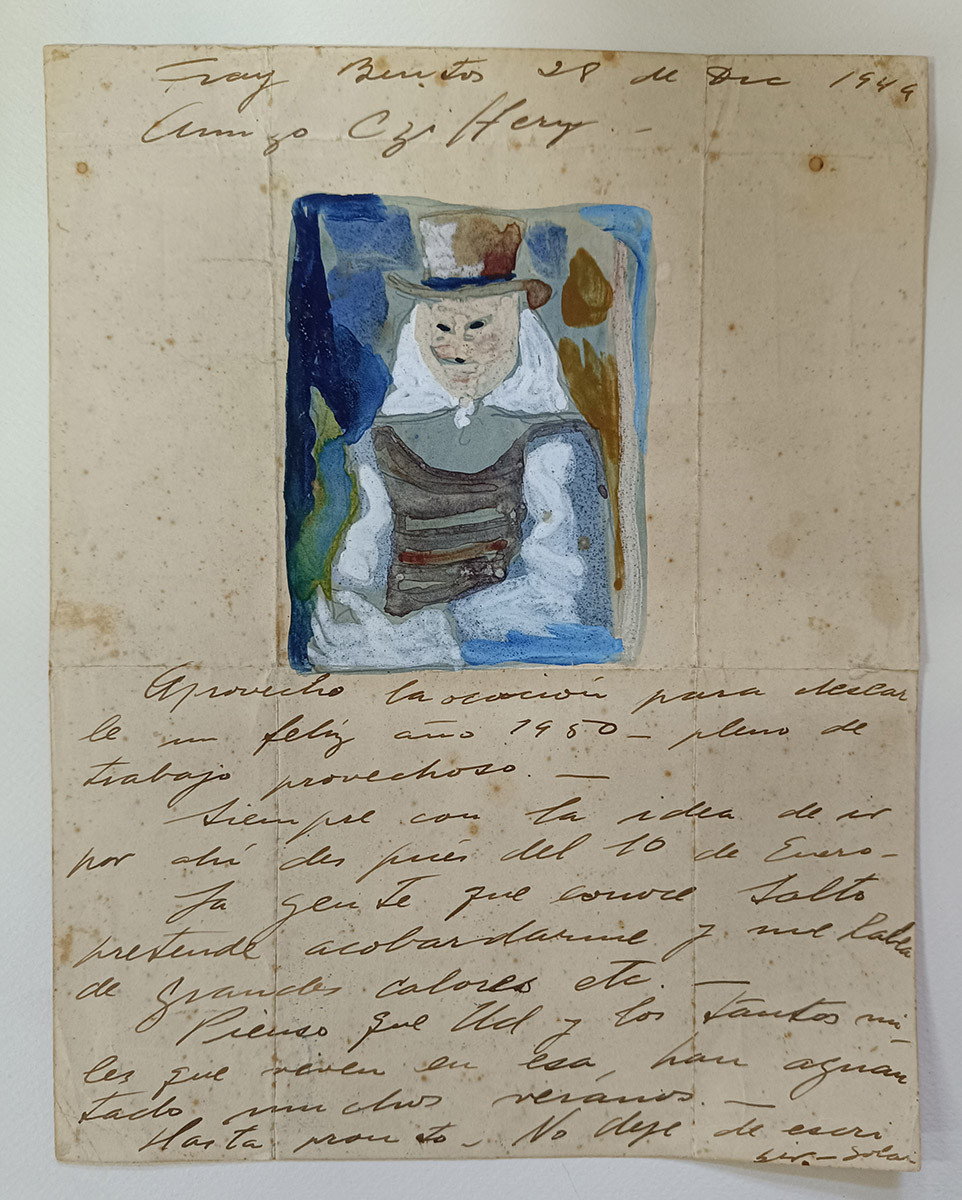 Fray Bentos 28 de Dic 1949
Amigo
Aprovecho la ocación para desear
le un feliz año 1950 — pleno de
trabajo provechoso. —
Siempre con la idea de ir
por ahí des pués del 10 de Enero —
La gente que conoce Salto
pretende acobardarme y me habla
de grandes calores etc. —
Pienso que Ud y los tantos mi
les que viven en esa, han aguan
tado muchos veranos. —
Hasta pronto — No deje de escri
bir. — Solari